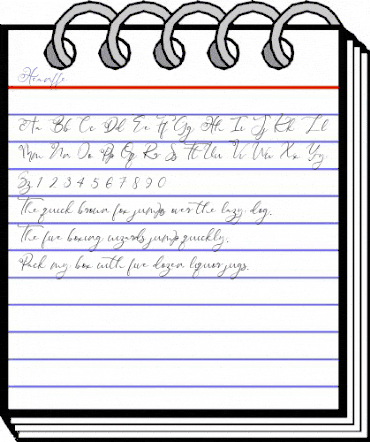 Aa Bb Cc Dd Ee Ff Gg Hh Ii Jj Kk Ll
Mm Nn Oo Pp Qq Rr Ss Tt Uu Vv Ww Xx Yy
Zz 1 2 3 4 5 6 7 8 9 0
The quick brown fox jumps over the lazy dog.
The five boxing wizards jump quickly.
Pack my box with five dozen liquor jugs.